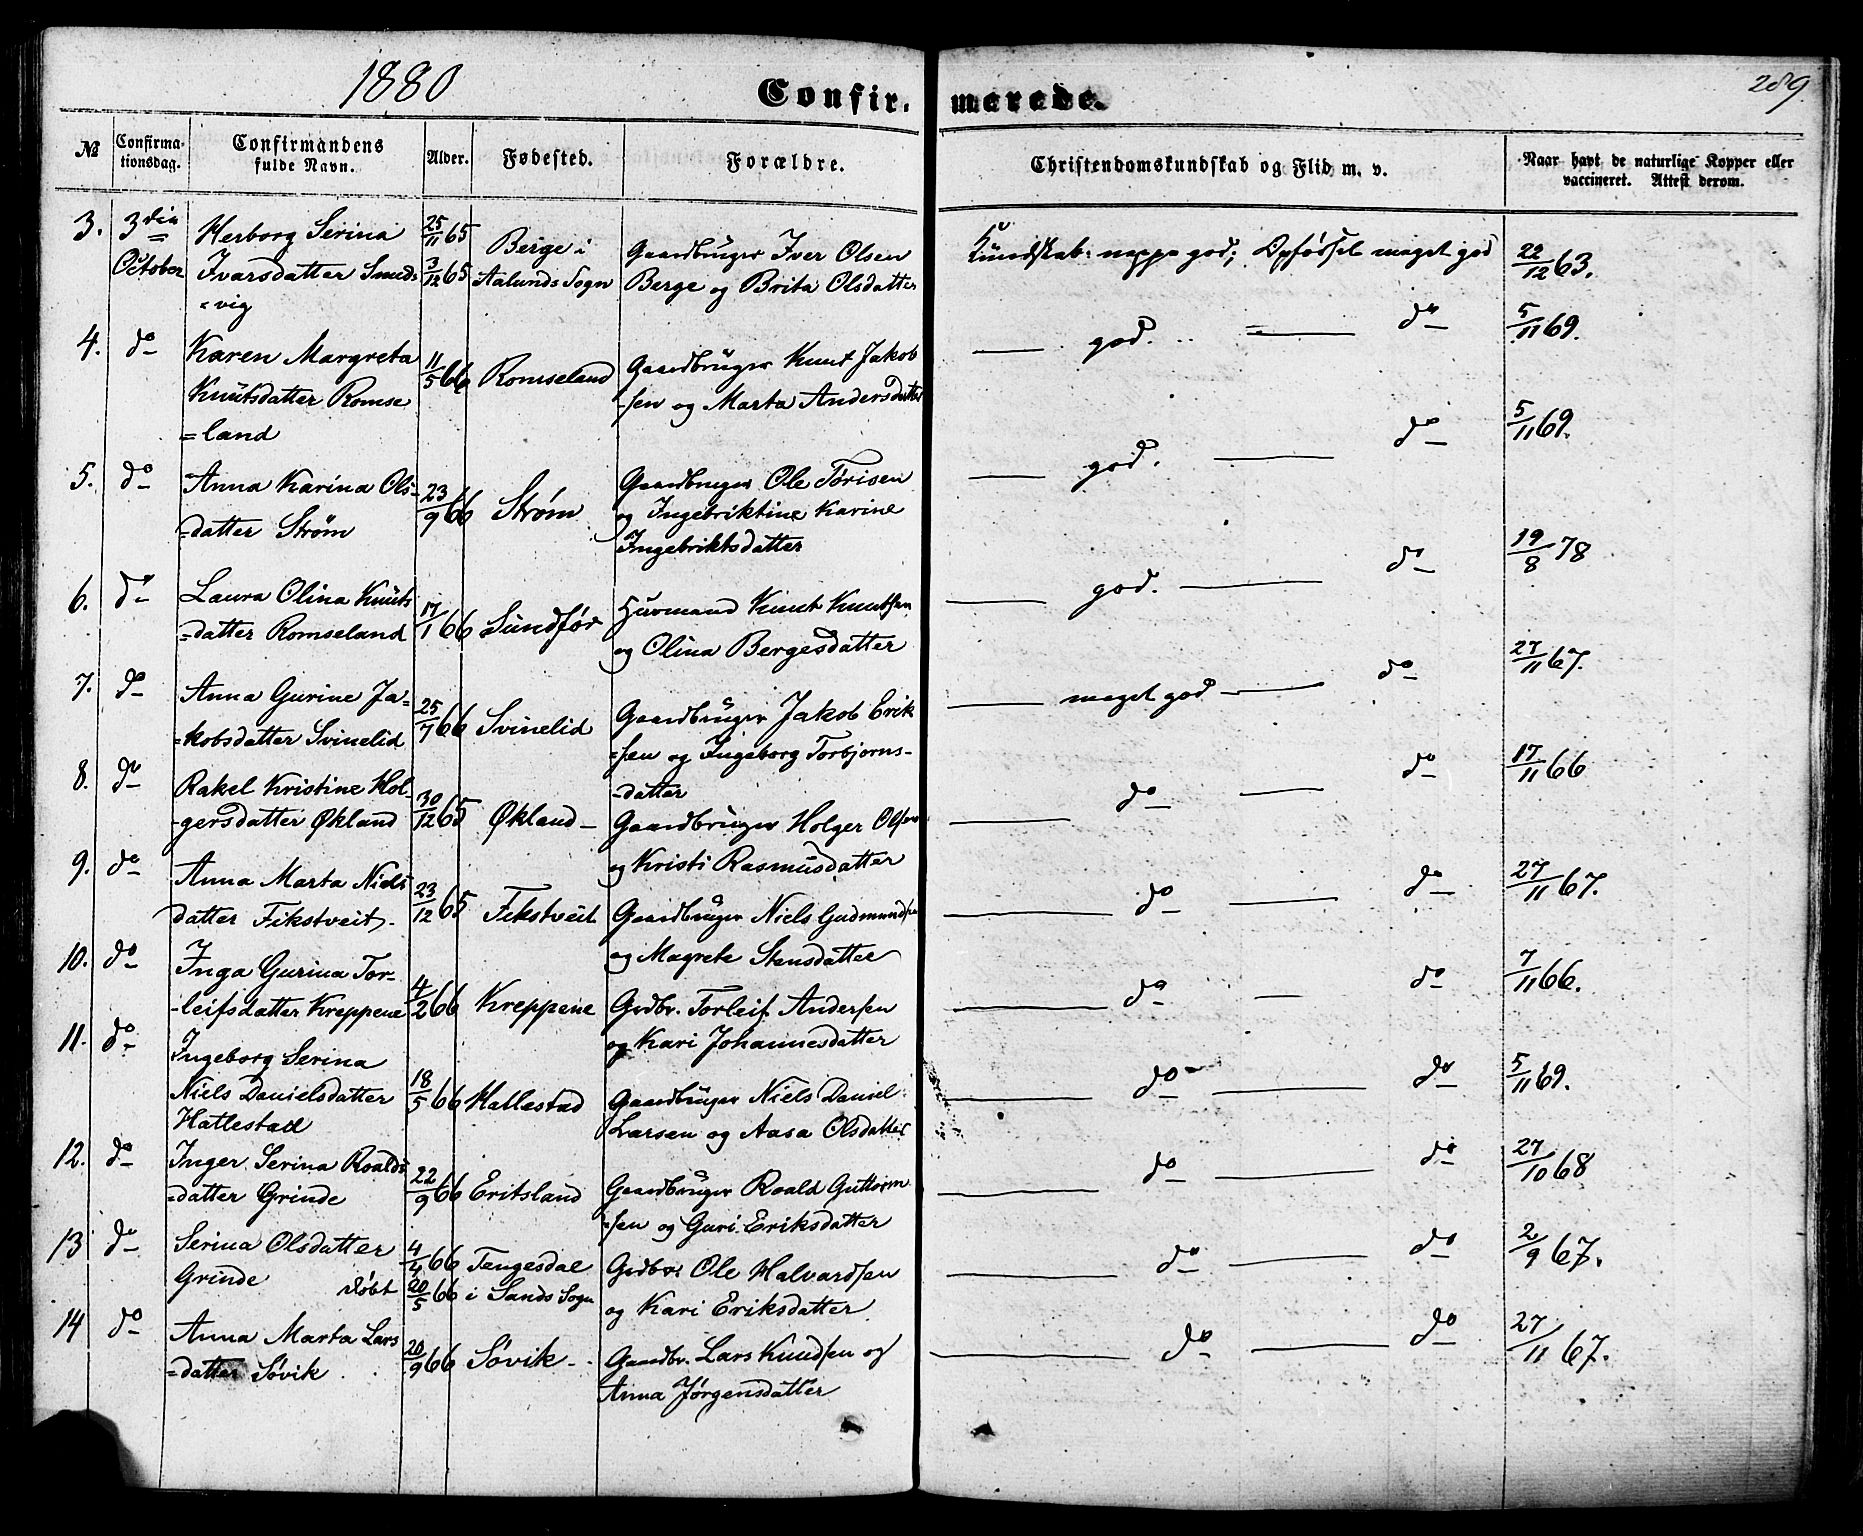 1880
Confirmerede.
289.
№ Confirmationsdag. Confirmandens fulde Navn. Alder. Fødested. Forældre. Christendomskundskab og Flid m. v. Naar havt de naturlige Kopper eller vaccineret. Attest derom.
3. 3die Herborg Serina 25/11 65 Berge i Gaardbruger Iver Olsen Kundskab: neppe god; Opførsel meget god 22/12 63.
October Ivarsdatter Smeds- 3/12 65 Aalunds Sogn Berge og Brita Olsdatter
=vig
4. do Karen Margreta 11/5 66 Romseland Gaardbruger Knut Jakob — god. — do 5/11 69.
Knutsdatter Romse -sen og Marta Andersdatter
=land
5. do Anna Karina Ols- 23/9 66 Strøm Gaardbruger Ole Torisen — god. — do 5/11 69.
=datter Strøm og Ingebriktine Karine
Ingebriktsdatter
6. do Laura Olina Knuts 17/1 66 Sundfør Huusmand Knut Knutsen — god. — do 19/8 78
=datter Romseland og Olina Bergesdatter
7. do Anna Gurine Ja- 25/7 66 Svinelid Gaardbruger Jakob Erik — meget god — do 27/11 67.
=kobsdatter Svinelid =sen og Ingeborg Torbjorns-
-datter
8. do Rakel Kristine Hol- 30/12 65 Økland — Gaardbruger Holger Olsen — do — do 17/11 66
-gersdatter Økland og Kristi Rasmusdatter
9. do Anna Marta Niels 23/12 65 Fikstveit Gaardbruger Niels Gudmundsen — do — do 27/11 67.
datter Fikstveit. og Magrete Stensdatter
10. do Inga Gurina Tor- 4/2 66 Kreppene Grdbr. Torleif Andersen — do — do 7/11 66.
-leifsdatter Kreppene og Kari Johannesdatter
11. do Ingeborg Serina 18/5 66 Hatlestad Gaardbruger Niels Daniel — do — do 5/11 69.
Niels Danielsdatter Larsen og Aasa Olsdatter
Hatlestad
12. do Inger Serina Roalds 22/9 66 Eritsland Gaardbruger Roald Guttorm — do — do 27/10 68
=datter Grinde =sen og Guri Eriksdatter
13 do Serina Olsdatter 4/4 66 Tengesdal Grdbr. Ole Halvardsen — do — do 2/9 67.
Grinde døbt 20/5 66 i Sands Sogn og Kari Eriksdatter
14 do Anna Marta Lars 20/9 66 Søvik — Gaardbr. Lars Knudsen og — do — do 27/11 67.
=datter Søvik Anna Jørgensdatter